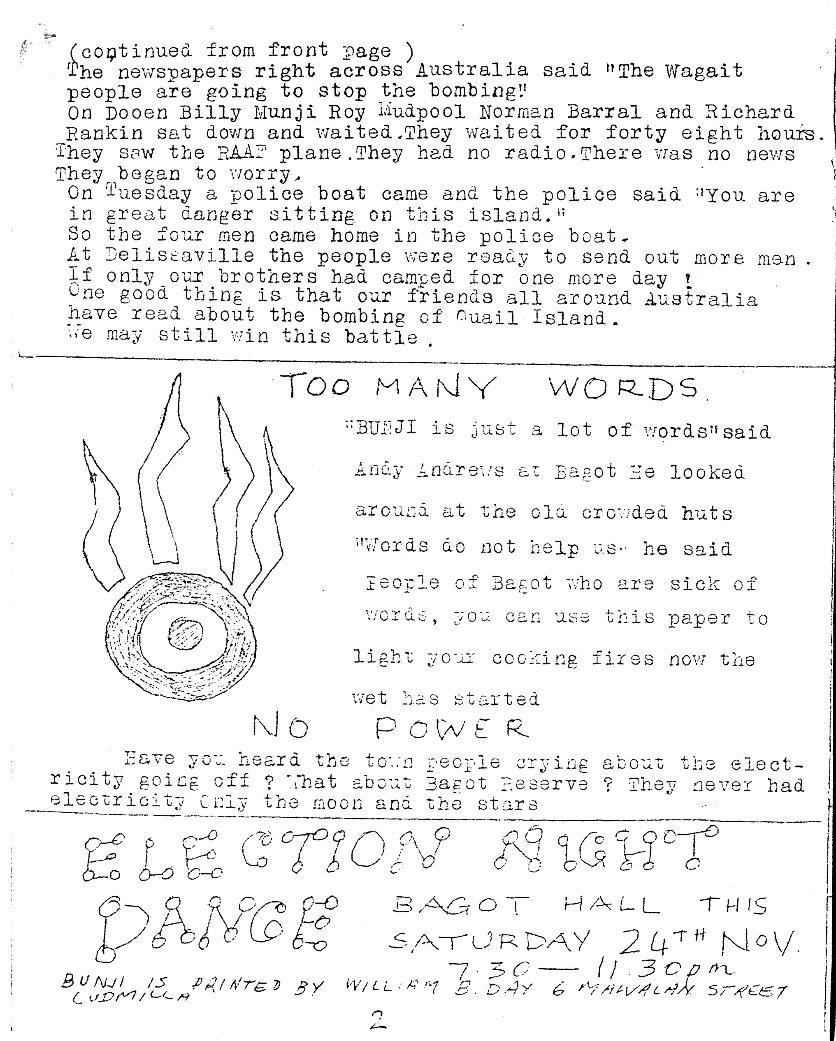 (continued from front page )
The newspapers right across Australia said "The Wagait
people are going to stop the bombing"
On Dooen Billy Munji Roy Mudpool Norman Barral and Richard
Rankin sat down and waited.They waited for forty eight hours.
They saw the RAAF plane.They had no radio.There was no news
They began to worry.
On Tuesday a police boat came and the police said "You are
in great danger sitting on this island."
So the four men came home in the police boat.
At Delissaville the people were ready to send out more men .
If only our brothers had camped for one more day !
One good thing is that our friends all around Australia
have read about the bombing of Quail Island.
We may still win this battle .
TOO MANY WORDS.
"BUNJI is just a lot of words"said
Andy Andrews at Bagot He looked
around at the old crowded huts
"Words do not help us" he said
People of Bagot who are sick of
words, you can use this paper to
light your cooking fires now the
wet has started
NO POWER
Have you heard the town people crying about the elect-
ricity going off ? What about Bagot Reserve ? They never had
electricity Only the moon and the stars
ELECTION NIGHT
DANCE
BAGOT HALL THIS
SATURDAY 24TH NOV.
7.30 — 11.30pm
BUNJI IS PRINTED BY WILLIAM B. DAY 6 MAWALAN STREET
LUDMILLA
2